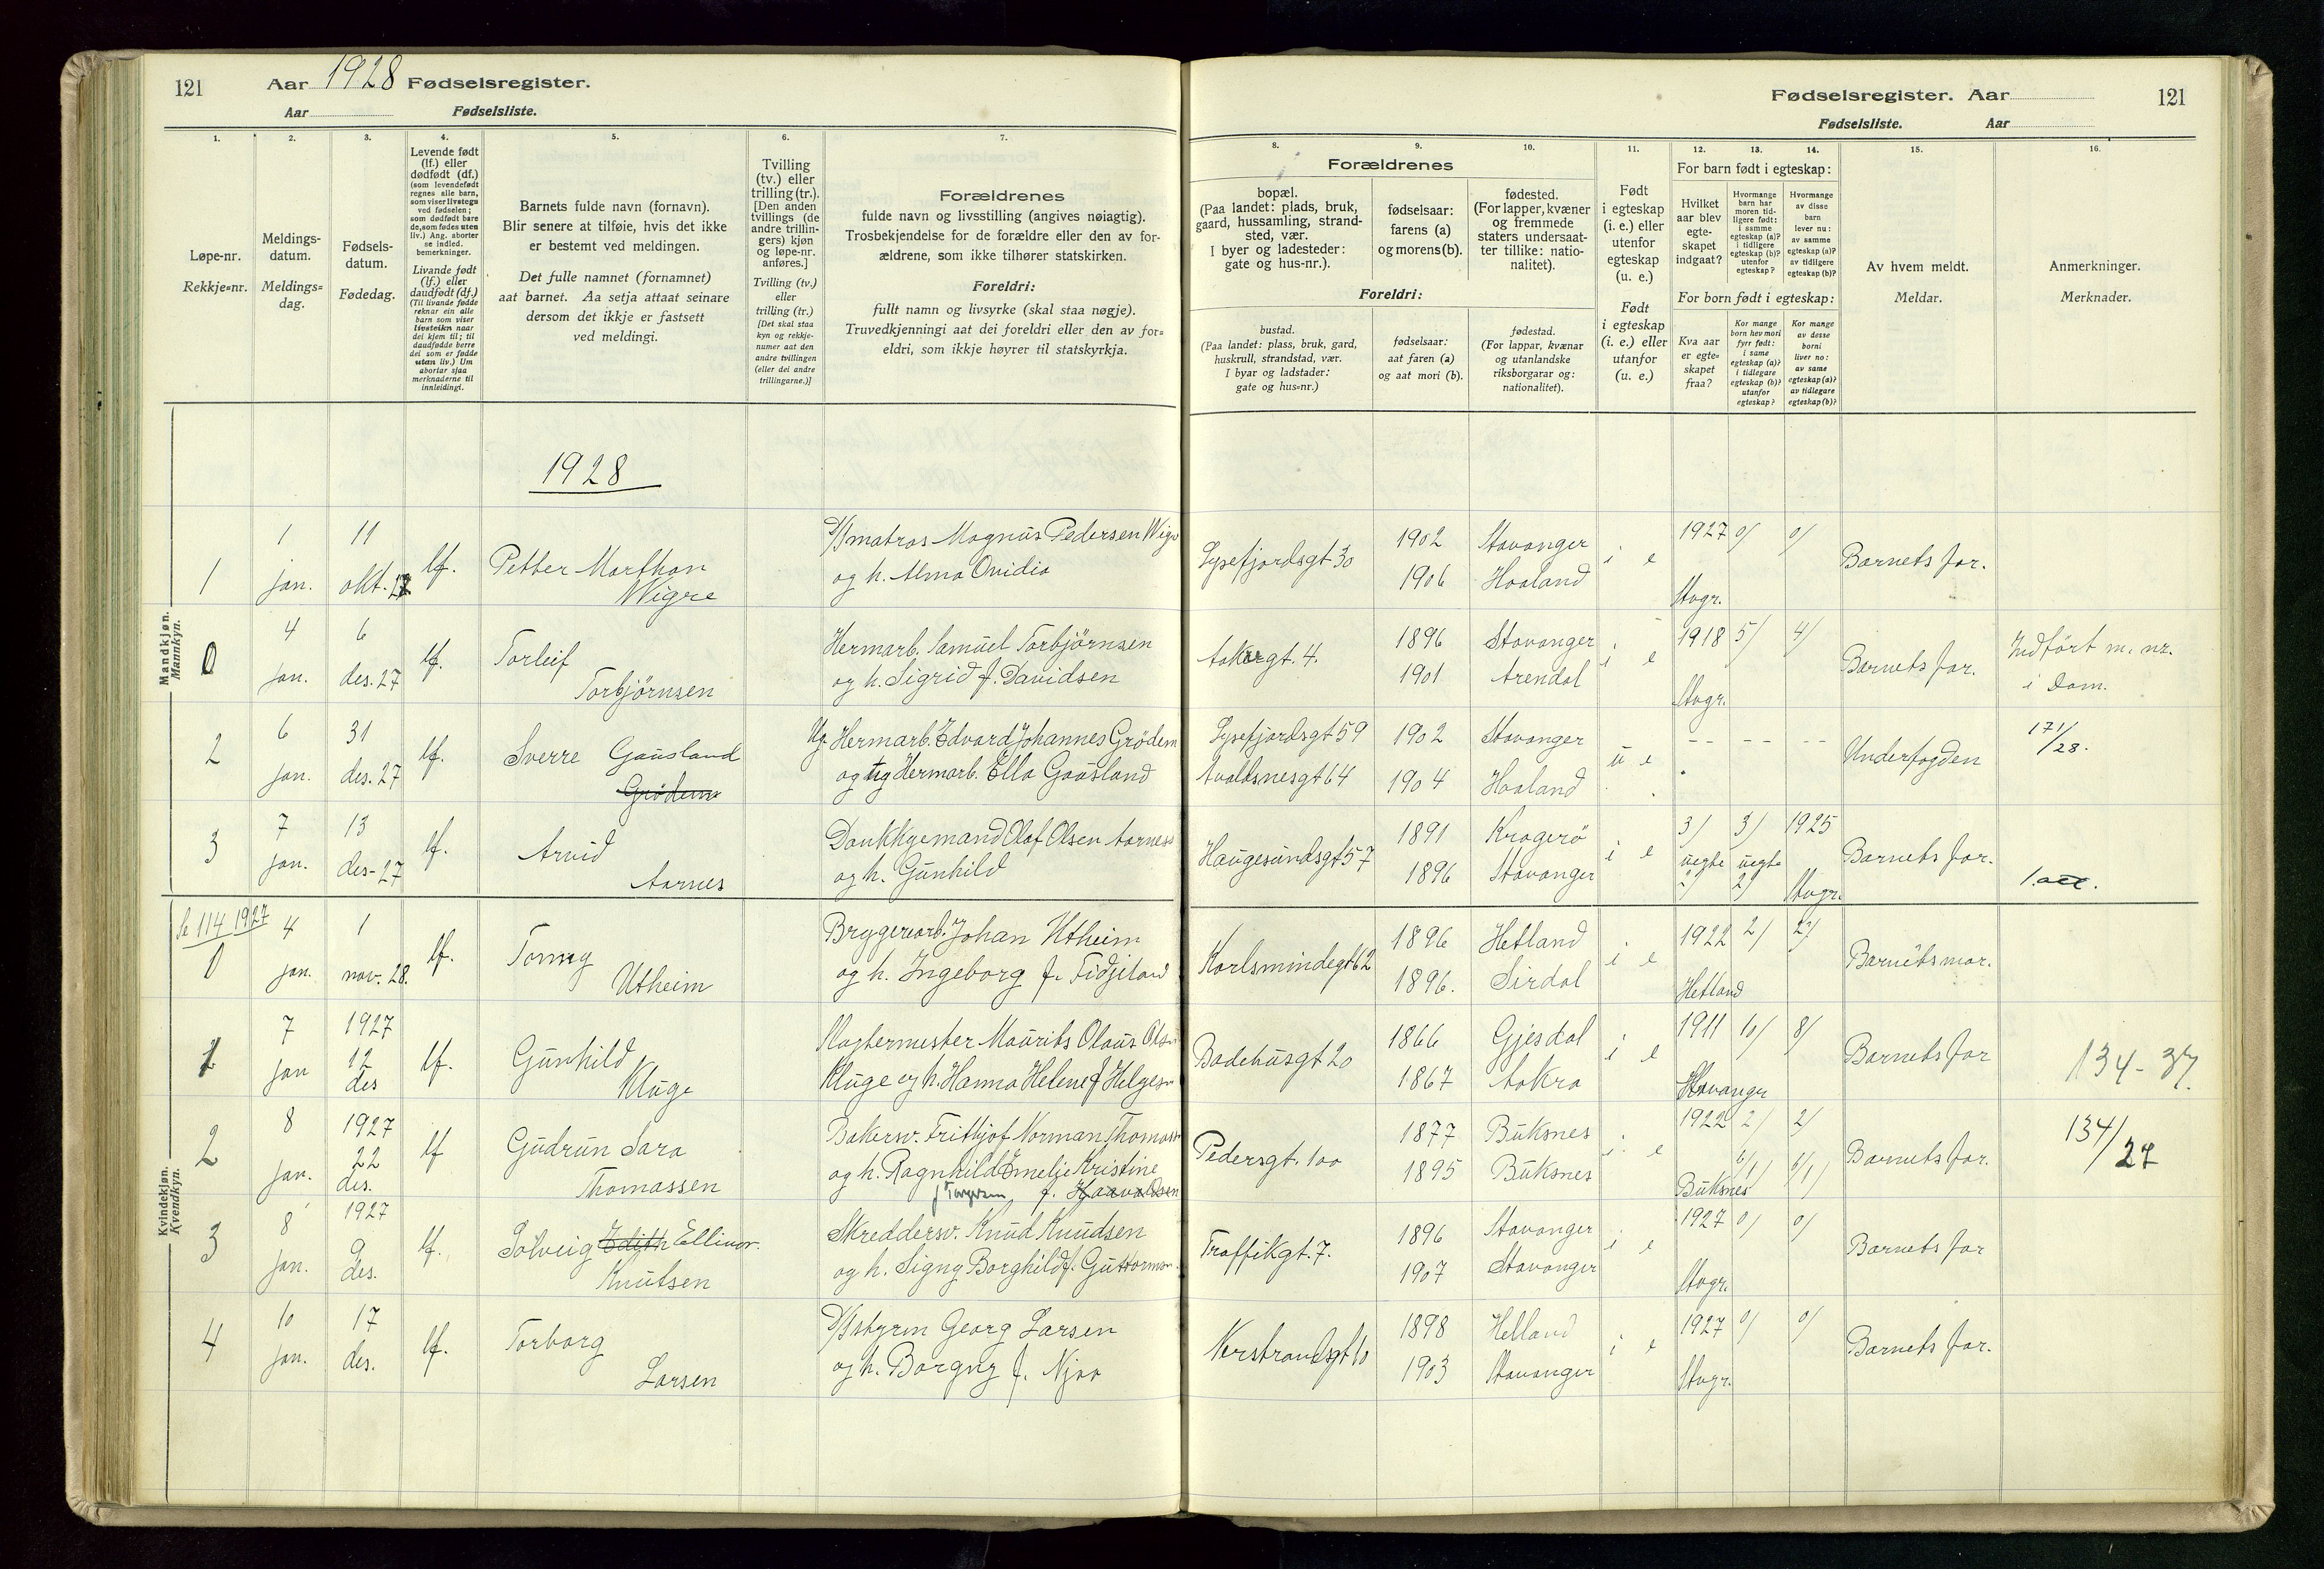 121 Aar 1928 Fødselsregister.
Aar Fødselsliste.
1.
2.
3.
4.
5.
6.
7.
Løpe-nr.
Rekkje-nr.
Meldings-
datum.
Meldings-
dag.
Fødsels-
datum.
Fødedag.
Levende født
(lf.) eller
dødfødt (df.)
(som levendefødt
regnes alle barn,
som viser livstegn
ved fødselen;
som dødfødt bare
de, som fødes uten
liv.) Ang. aborter
se indled.
bemerkninger.
Livande født
(lf.) eller
daudfødt (df.)
(Til livande fødde
reknar ein alle
barn som viser
livsteikn naar
dei kjem til; til
daudfødde berre
dei som er fødde
utan liv.) Um
abortar sjaa
merknaderne til
innleidingi.
Barnets fulde navn (fornavn).
Blir senere at tilføie, hvis det ikke
er bestemt ved meldingen.
Det fulle namnet (fornamnet)
aat barnet. Aa setja attaat seinare
dersom det ikkje er fastsett
ved meldingi.
Tvilling
(tv.) eller
trilling (tr.).
[Den anden
tvillings (de
andre trillin-
gers) kjøn
og løpe-nr.
anføres.]
Tvilling (tv.)
eller
trilling (tr.)
[Det skal staa
kyn og rekkje-
numer aat den
andre tvillingen
(eller dei andre
trillingarne.)]
Forældrenes
fulde navn og livsstilling (angives nøiagtig).
Trosbekjendelse for de forældre eller den av for-
ældrene, som ikke tilhører statskirken.
Foreldri:
fullt namn og livsyrke (skal staa nøgje).
Truvedkjenningi aat dei foreldri eller den av for-
eldri, som ikkje høyrer til statskyrkja.
Mandkjøn.
Mannkyn.
1928
1
1 jan.
11 okt. 27
lf.
Petter Marthon
Wigre
D/S matros Magnus Pedersen Wigre
og h. Alma Ovidia
0
4 jan.
6 des. 27
lf.
Torleif
Torbjörnsen
Hermarb. Samuel Torbjörnsen
og h. Sigrid f. Davidsen
2
6 jan.
31 des. 27
lf.
Sverre Gausland
Grödem
Ug. Hermarb. Edvard Johannes Grödem
og ug Hermarb. Ella Gausland
3
7 jan.
13 des. 27
lf.
Arvid
Aarnes
Olaf Olsen Aarness
og h. Gunhild
Kvindekjøn.
Kvendkyn.
Se 114 1927
0
4 jan.
1 nov. 28.
lf.
Tomy
Utheim
Bryggeriarb. Johan Utheim
og h. Ingeborg f. Fidjeland
1
7 jan
1927 12 des
lf.
Gunhild
Kluge
Slagtermester Maurits Olaus Olsen
Kluge og h. Hanna Helene f Helgesen
2
8 jan.
1927 22 des.
lf
Gudrun Sara
Thomassen
Bakersv. Frithjof Norman Thomassen
og h. Ragnhild Emelie Kristine
f Torgersen f. Haavaldsen
3
8 jan.
1927 9 des.
lf.
Solveig Edith Ellinor.
Knutsen
Skreddersv. Knud Knudsen
og h. Signy Borghild f. Guttormsen
4
10 jan.
17 des.
lf.
Torborg
Larsen
D/S styrm Georg Larsen
og h. Borgny f. Njaa
Fødselsregister. Aar 121
Fødselsliste. Aar
8.
9.
10.
11.
12.
13.
14.
15.
16.
Forældrenes
bopæl.
(Paa landet: plads, bruk,
gaard, hussamling, strand-
sted, vær.
I byer og ladesteder:
gate og hus-nr.).
fødselsaar:
farens (a)
og morens (b).
fødested.
(For lapper, kvæner
og fremmede
staters undersaat-
ter tillike: natio-
nalitet).
Foreldri:
bustad.
(Paa landet: plass, bruk, gard,
huskrull, strandstad, vær.
I byar og ladstader:
gate og hus-nr.)
fødselsaar:
aat faren (a)
og aat mori (b).
fødestad.
(For lappar, kvænar
og utanlandske
riksborgarar og:
nationalitet).
Født
i egteskap
(i. e.) eller
utenfor
egteskap
(u. e.)
Født
i egteskap
(i. e.) eller
utanfor
(u. e.)
For barn født i egteskap:
Hvilket
aar blev
egte-
skapet
indgaat?
Hvormange
barn har
moren tid-
ligere født:
i samme
egteskap (a)?
i tidligere
egteskap (b)?
utenfor
egteskap?
Hvormange
av disse
barn
lever nu:
av samme
egteskap (a)?
av tidligere
egteskap (b)?
For born født i egteskap:
Kva aar
er egte-
skapet
fraa?
Kor mange
born hev mori
fyrr født:
i same
egteskap (a)?
i tidlegare
egteskap (b)?
utanfor
egteskap?
Kor mange
av desse
borni
liver no:
av same
egteskap (a)?
av tidlegare
egteskap (b)?
Av hvem meldt.
Meldar.
Anmerkninger.
Merknader.
Lysefjordsgt 30
1902 Stavanger
1906 Haaland
i e
1927 0/ 0/
Stvgr.
Barnets far.
gt. 4.
1896 Stavanger
1901 Arendal
i e
1918 5/ 4/
Stvgr.
Barnets far.
Indført m. nr.
i Dom.
Lysefjordsgt 59
Avaldsnesgt 64
1902 Stavanger
1904 Haaland
u e
-- -- --
Underfogden
171/28.
Haugesundsgt 57
1891 Kragerö
1896 Stavanger
i e
3/ 3/ 1925
uegte uegte
2/ 2/ Stvgr.
Barnets far.
1. att.
Karlsmindegt 62
1896 Hetland
1896. Sirdal
i e
1922 2/ 2/
Hetland
Barnets mor.
Badehusgt 20
1866 Gjesdal
1867 Aakra
i e
1911 10/ 8/
Stavanger
Barnets far
134-37.
Pedersgt. 100
1877 Buksnes
1895 Buksnes
i. e
1922 2/ 2/
6/1 6/1
Buksnes
Barnets far.
134/27
Traffikgt. 7.
1896 Stavanger
1907 Stavanger
i e
1927 0/ 0/
Stvgr.
Barnets far
Nerstrandsgt 10
1898 Helland
1903 Stavanger
i e
1927 0/ 0/
Stvgr.
Barnets far.